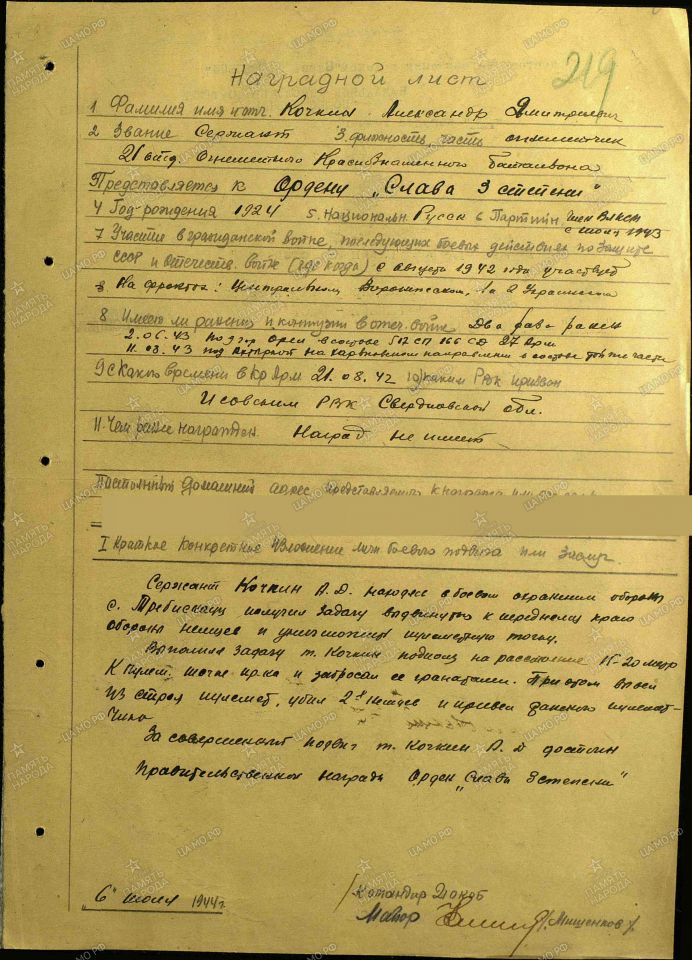 219
Наградной лист
1. Фамилия имя и отч. Кочкин Александр Дмитриевич
2 Звание Сержант 3. должность, часть огнеметчик
21 отд. Огнеметного Краснознаменного Батальона
Представляется к Ордену „Слава 3 степени"
4 Год рождения 1924 5. Национальн. Русск 6 Партийн Член ВЛКСМ
с 1943
7 Участие в гражданской войне, последующих боевых действиях по защите
СССР и отечеств. войне (где когда) с августа 1942 года участвует
На фронтах: Центральном, Воронежском, 1 и 2 Украинском
8 Имеет ли ранения и контузии в отеч. войне Два раза ранен
2.06.43 под гор Орел в составе 517 СП 166 СД 27 Арм.
11.03.43 под на направлении в составе той же части
9 С какого времени в Кр Арм. 21.08.42 10) каким РВК призван
Исовским РВК Свердловской обл.
11. Чем ранее награжден. Наград не имеет
Постоянный домашний адрес представляемого к награде
I Краткое конкретное изложение личн боевого подвига или заслуг.
Сержант Кочкин А.Д. находясь в боевом охранении обороны
с. Требисауцы получил задачу выдвинуться к переднему краю
обороны немцев и уничтожить пулеметную точку.
Выполняя задачу т. Кочкин подполз на расстояние 15-20 метр
к пулем. точке пр-ка и забросал ее гранатами. При этом вывел
из строя пулемет, убил 2х немцев и привел пулемет-
чика
За совершенный подвиг т. Кочкин А.Д достоин
Правительственной награды Орден „Слава 3 степени"
„6" июля 1944г.
Командир 21 окоб
Майор /Мишенков/